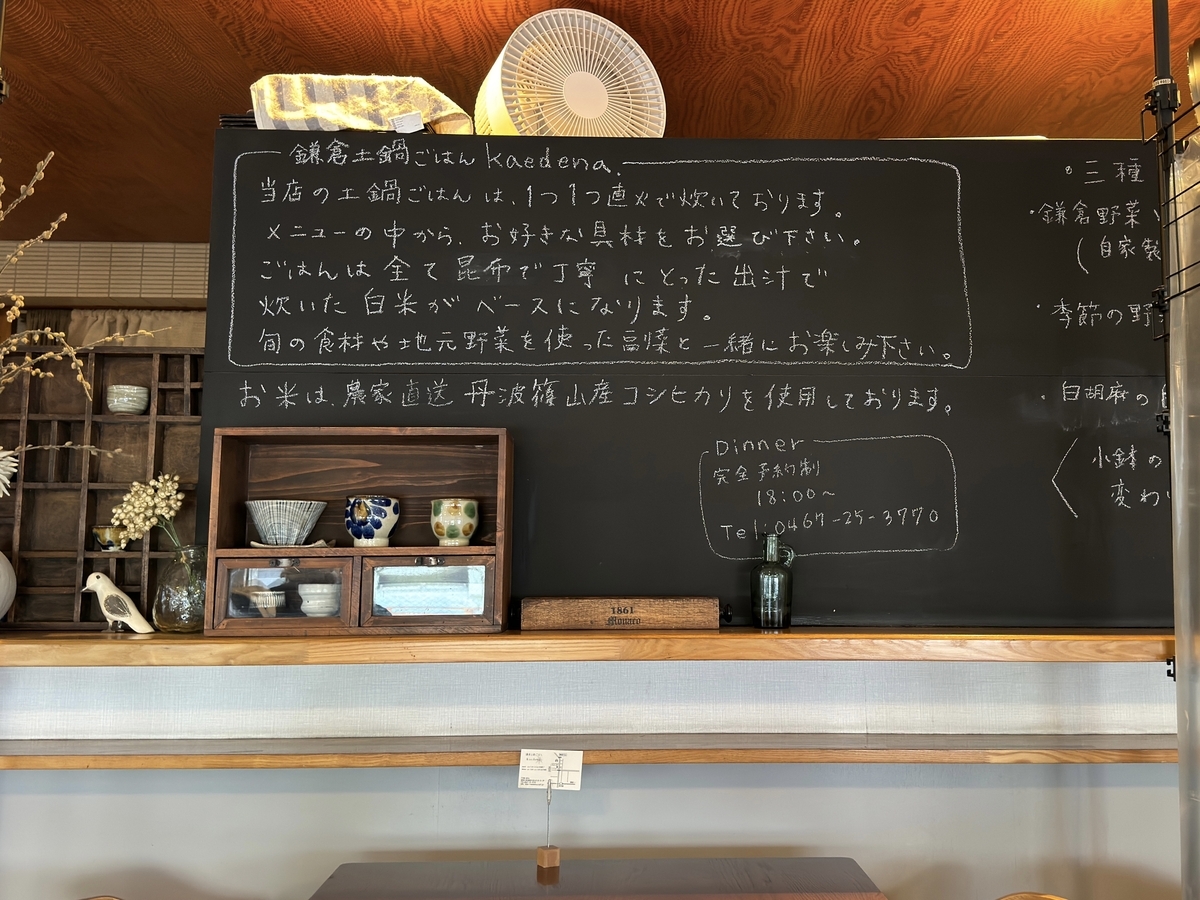 鎌倉土鍋ごはん kaedena.
当店の土鍋ごはんは、1つ1つ直火で炊いております。
メニューの中から、お好きな具材をお選び下さい。
ごはんは全て昆布で丁寧にとった出汁で
炊いた白米がベースになります。
旬の食材や地元野菜を使った高惵と一緒にお楽しみ下さい。
お米は、農家直送 丹波篠山産コシヒカリを使用しております。
Dinner
完全予約制
18:00~
Tel:0467-25-3770
・三種
・鎌倉野菜
(自家製
・季節の野
・白胡麻の
小鉢の
変わ
1861
Monaco